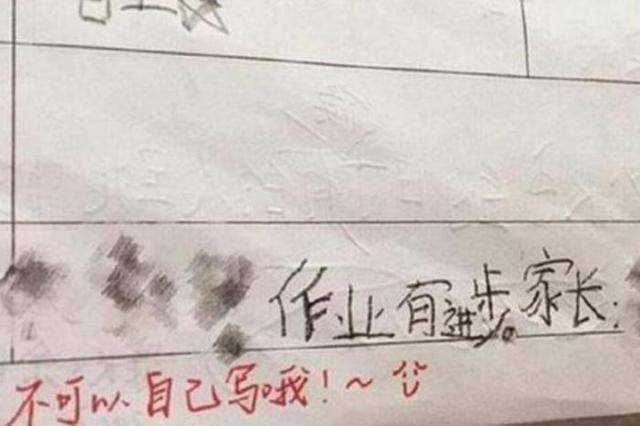 作业有进步。家长:
不可以自己写哦!~